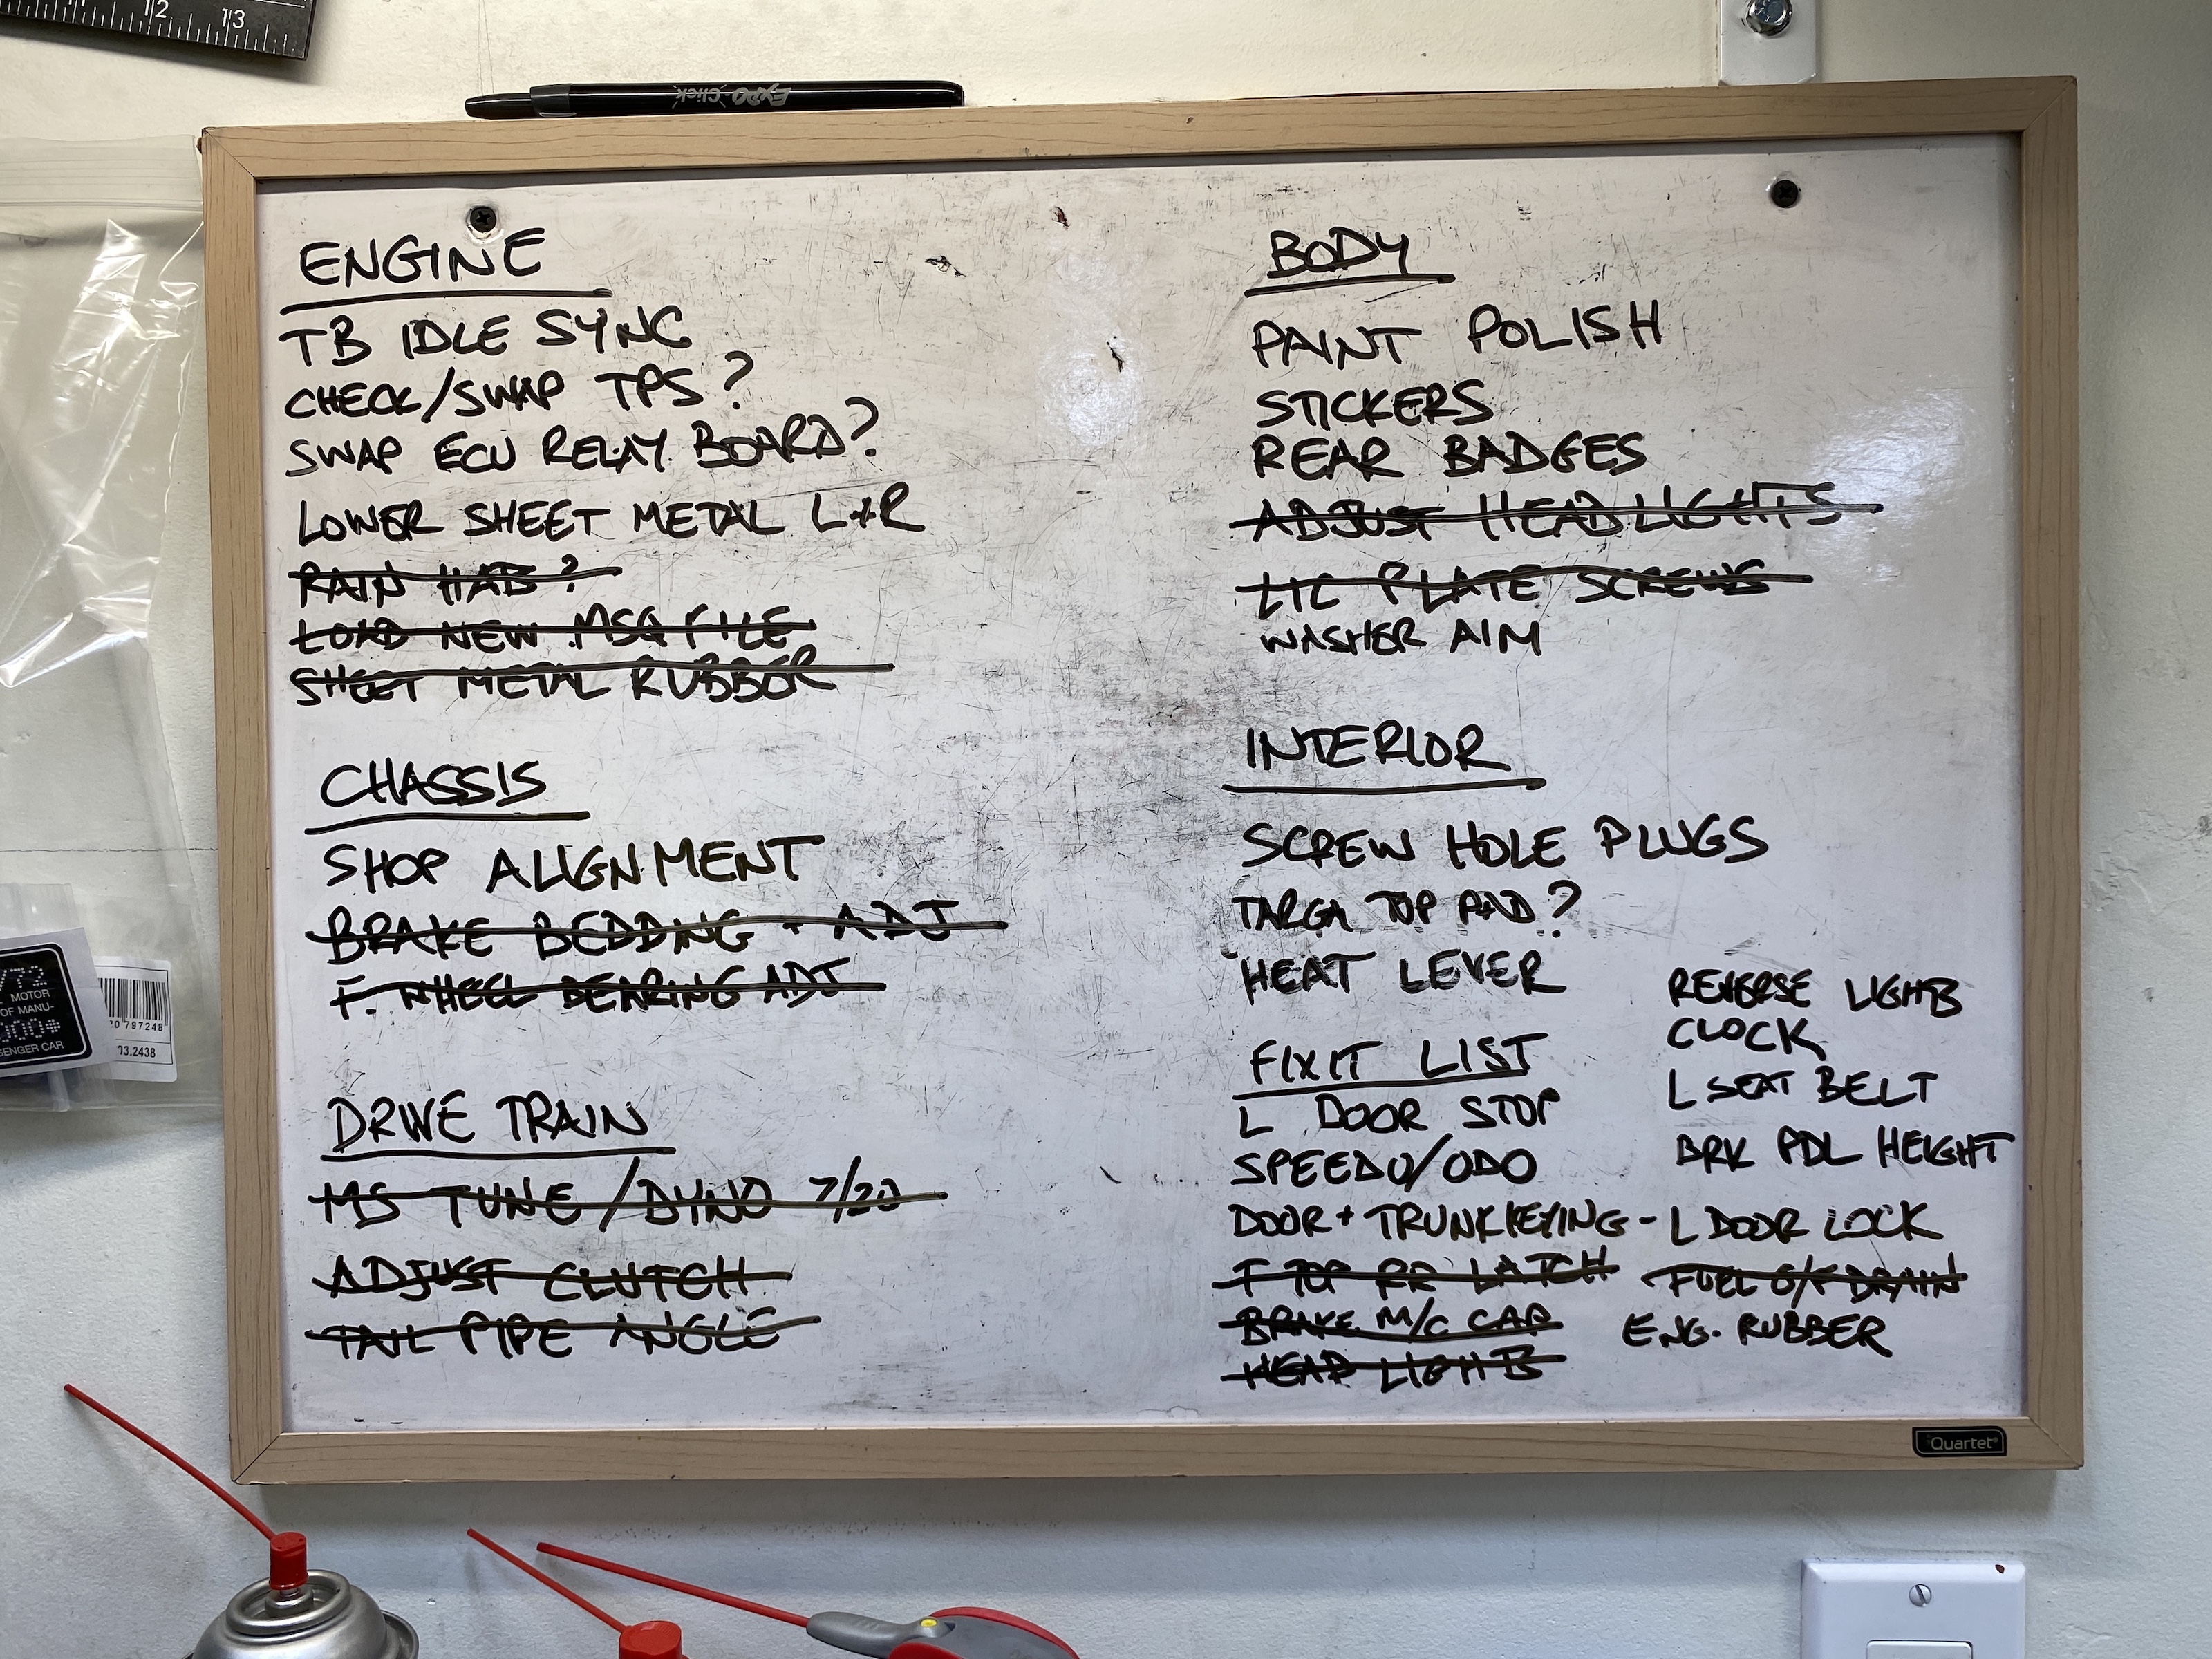 12 13
EXPO Click
ENGINE
TB IDLE SYNC
CHECK/SWAP TPS?
SWAP ECU RELAY BOARD?
LOWER SHEET METAL L+R
RAIN HAB?
LOAD NEW MSQ FILE
SHEET METAL RUBBER
CHASSIS
SHOP ALIGNMENT
BRAKE BEDDING + ADJ
F. WHEEL BEARING ADJ
DRIVE TRAIN
MS TUNE/DYNO 7/20
ADJUST CLUTCH
TAIL PIPE ANGLE
BODY
PAINT POLISH
STICKERS
REAR BADGES
ADJUST HEADLIGHTS
LIC PLATE SCREWS
WASHER AIM
INTERIOR
SCREW HOLE PLUGS
TARGA TOP PAD?
HEAT LEVER
FIXIT LIST
L DOOR STOP
SPEEDO/ODO
DOOR + TRUNK KEYING - L DOOR LOCK
T TOP RR LATCH
BRAKE M/C CAP
HEAD LIGHTS
REVERSE LIGHTS
CLOCK
L SEAT BELT
BRK PDL HEIGHT
FUEL O/F DRAIN
ENG. RUBBER
Quartet
/72
MOTOR
OF MANU-
000*
SENGER CAR
0 797248
03.2438